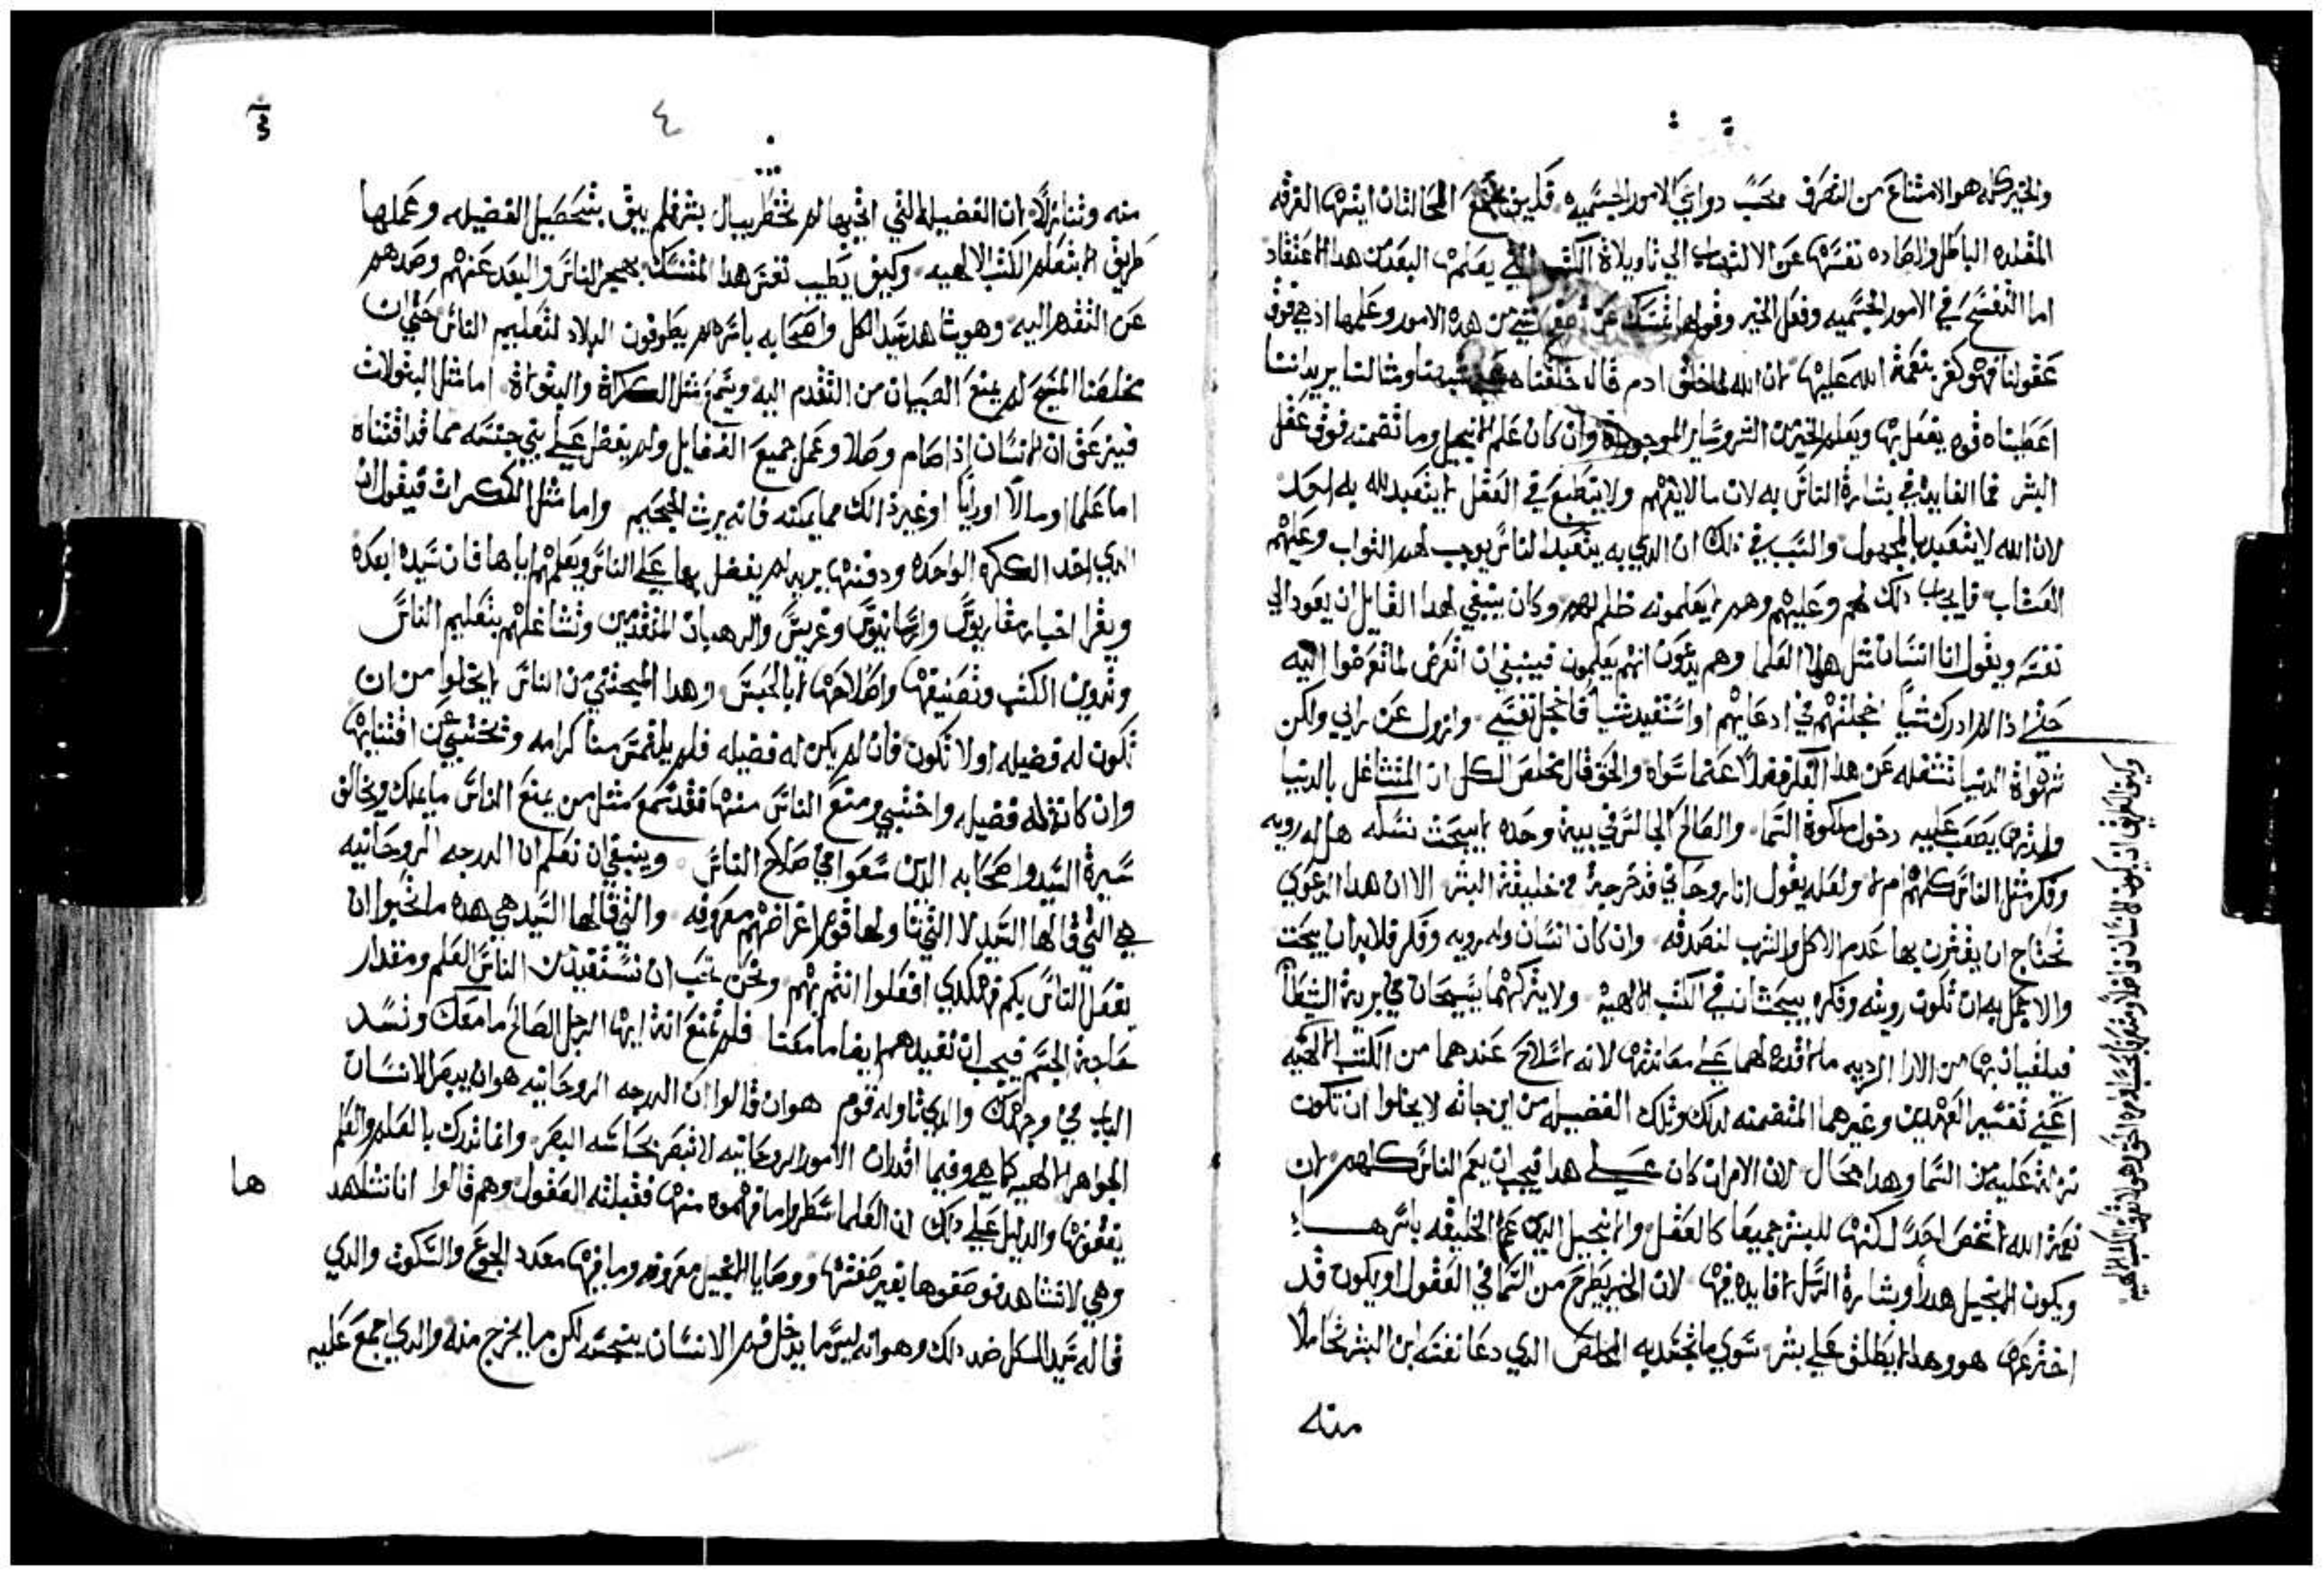 والخير كله هو الامتناع من التصرف بحسب دواعي الامور الجسميه فليت المخالفتان ايتها الفرقه
المقلده الباطل والصاده نفسها عن الالتفات الي تاويلاة الكتب التي يعلم البعد من هذا الاعتقاد
اما التفسح في الامور الجسميه وفعل الخير وقولها شي من هده الامور وعلمها اد هي فوق
عقولنا فهو كفر بنعمة الله عليها ان الله لما خلق ادم قال خلقناه شبهنا ومثالنا يريد اننا
اعطيناه قوه يفعل بها ويعلم الخير من الشر وساير الموجوداة وان كان علم الانجيل وما تضمنه فوق عقل
البشر فما الفايده في بشارة الناس به لان ما لا يفهم ولا ينطبع في العقل لا يتعبد لله به احد
لان الله لا يتعبد بالمجهول والسبب في ذلك ان الدي به يتعبد الناس يوجب لهم الثواب وعليهم
العقاب فايجاب دلك لهم وعليهم وهم لا يعلمونه ظلم لهم وكان ينبغي لهدا القايل ان يعود الي
نفسه ويقول انا انسان مثل هولا العلما وهم يدعون انهم يعلمون فينبغي ان اتعرض لما تعرضوا اليه
حتي اذا لم ادرك شيا اخجلتهم في ادعايهم او استفيد شيا فاخجل نفسي وازول عن رايي ولكن
شهواة الدنيا تشغله عن هدا الفكر فضلا عما سواه والحق قال مخلص الكل ان المتشاغل بالدنيا
ولدتها يصعب عليه دخول ملكوة السما والصالح الجالس في بيته وحده لا يبحث نسله هل له رويه
وفكر مثل الناس كلهم ام لا ولعله يقول انا روحاني قد خرجة من خليقة البشر الا ان هدا الدعوي
تحتاج ان يقترن بها عدم الاكل والشرب لنصدقه وان كان انسان وله رويه وفكر فلا بد ان يبحث
والاجمل به ان تكون رويته وفكره يبحثان في الكتب الالهية ولا يتركهما يسبحان في برية الشيطان
فيلقيانها من الارا الرديه ما لا قدره لهما علي معاندتها لانه لا سلاح عندهما من الكتب الالهيه
اعني تفسير العهدين وغيرهما المتضمنه لدلك وتلك الفضيله من اين جاته لا يخلوا ان تكون
نزلة عليه من السما وهدا محال لان الامر ان كان علي هدا فيجب ان يعم الناس كلهم لان
نعمة الله لا تخص احدا لكنها للبشر جميعا كالعقل والانجيل الدي عم الخليقه باسرها
ويكون الانجيل هدرا وبشارة الرسل لا فايده فيها لان الخير يطرح من السما في العقول او يكون قد
اخترعها هو وهدا لا يطلق علي بشر سوي ما تجسد به المخلص الدي دعا نفسه ابن البشر تحاملا
منه
وكيف يمكن ان يكون الانسان فاضلا
٤
منه وتنازلا لان الفضيله التي اتي بها لم تخطر ببال بشر فلم يبق بتحصيل الفضيله وعملها
طريق الا بتعلم الكتب الالهيه وكيف يطيب نفس هدا المتنسك بهجر الناس والبعد عنهم وصدهم
عن التقدم اليه وهو يشاهد سيد الكل واصحابه باسرهم يطوفون البلاد لتعليم الناس حتي ان
مخلصنا المسيح لم يمنع الصبيان من التقدم اليه ويسمع مثل الكراة والبتولاة اما مثل البتولات
فينبي عن ان الانسان اذا صام وصلا وعمل جميع الفضايل ولم يفضل علي بني جنسه مما قد اقتناه
اما علما او مالا او رايا او غير ذالك مما يمكنه فانه يرث الجحيم واما مثل الكرات فيقول ان
الدي اخد الكره الواحده ودفنها يريد لم يفضل بها علي الناس ويعلمهم اياها فان سيده ابعده
ويقرا اخبار مقاريوس وارسانيوس وغريس والرهبان المتقدمين وتشاغلهم بتعليم الناس
وتدوين الكتب وتصنيفها واصلاحها لا بالحبس وهدا المختبي من الناس لا يخلوا من ان
تكون له فضيله او لا تكون فان لم يكن له فضيله فلم يلتمس منا كرامه ويختبي عن اقتنايها
وان كانة له فضيله واختبي ومنع الناس منها فقد سمع مثل من يمنع الناس ما يملك ويخالف
سيرة السيد واصحابه الدين سعوا في صلاح الناس وينبغي ان تعلم ان الدرجه الروحانيه
هي التي قالها السيد لا التي تاولها قوم اغراضهم معروفه والتي قالها السيد هي هده ما تحبوا ان
يفعل الناس بكم فهكدي افعلوا انتم بهم ونحن نحب ان نستفيد من الناس العلم ومقدار
حاجة الجسم فيجب ان نفيدهم ايضا ما معنا فلم تمنع انة ايها الرجل الصالح ما معك وتسد
الباب في وجهك والدي تاوله قوم هو ان قالوا ان الدرجه الروحانيه هو ان يبصر الانسان
الجواهر الالهيه كما هي وفيما افدان الامور الروحانيه لا تبصر بحاسه البصر وانما تدرك بالعلم والفهم
يفعونها والدليل علي دلك ان العلما سطروا ما فهموه منها فقبلته العقول وهم قالوا انا نشاهدها
وهي لا تشاهد فوصفوها بغير صفتها ووصايا الانجيل معروفه وما فيها معدد الجوع والسكوت والدي
قاله سيد الكل ضد دلك وهو انه ليس ما يدخل فم الانسان ينجسه لكن ما يخرج منه والدي اجمع عليه